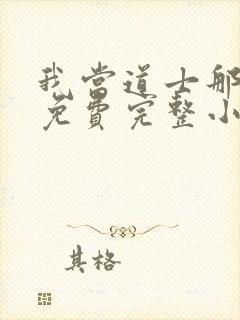 我当道士那
免费完整小
其格